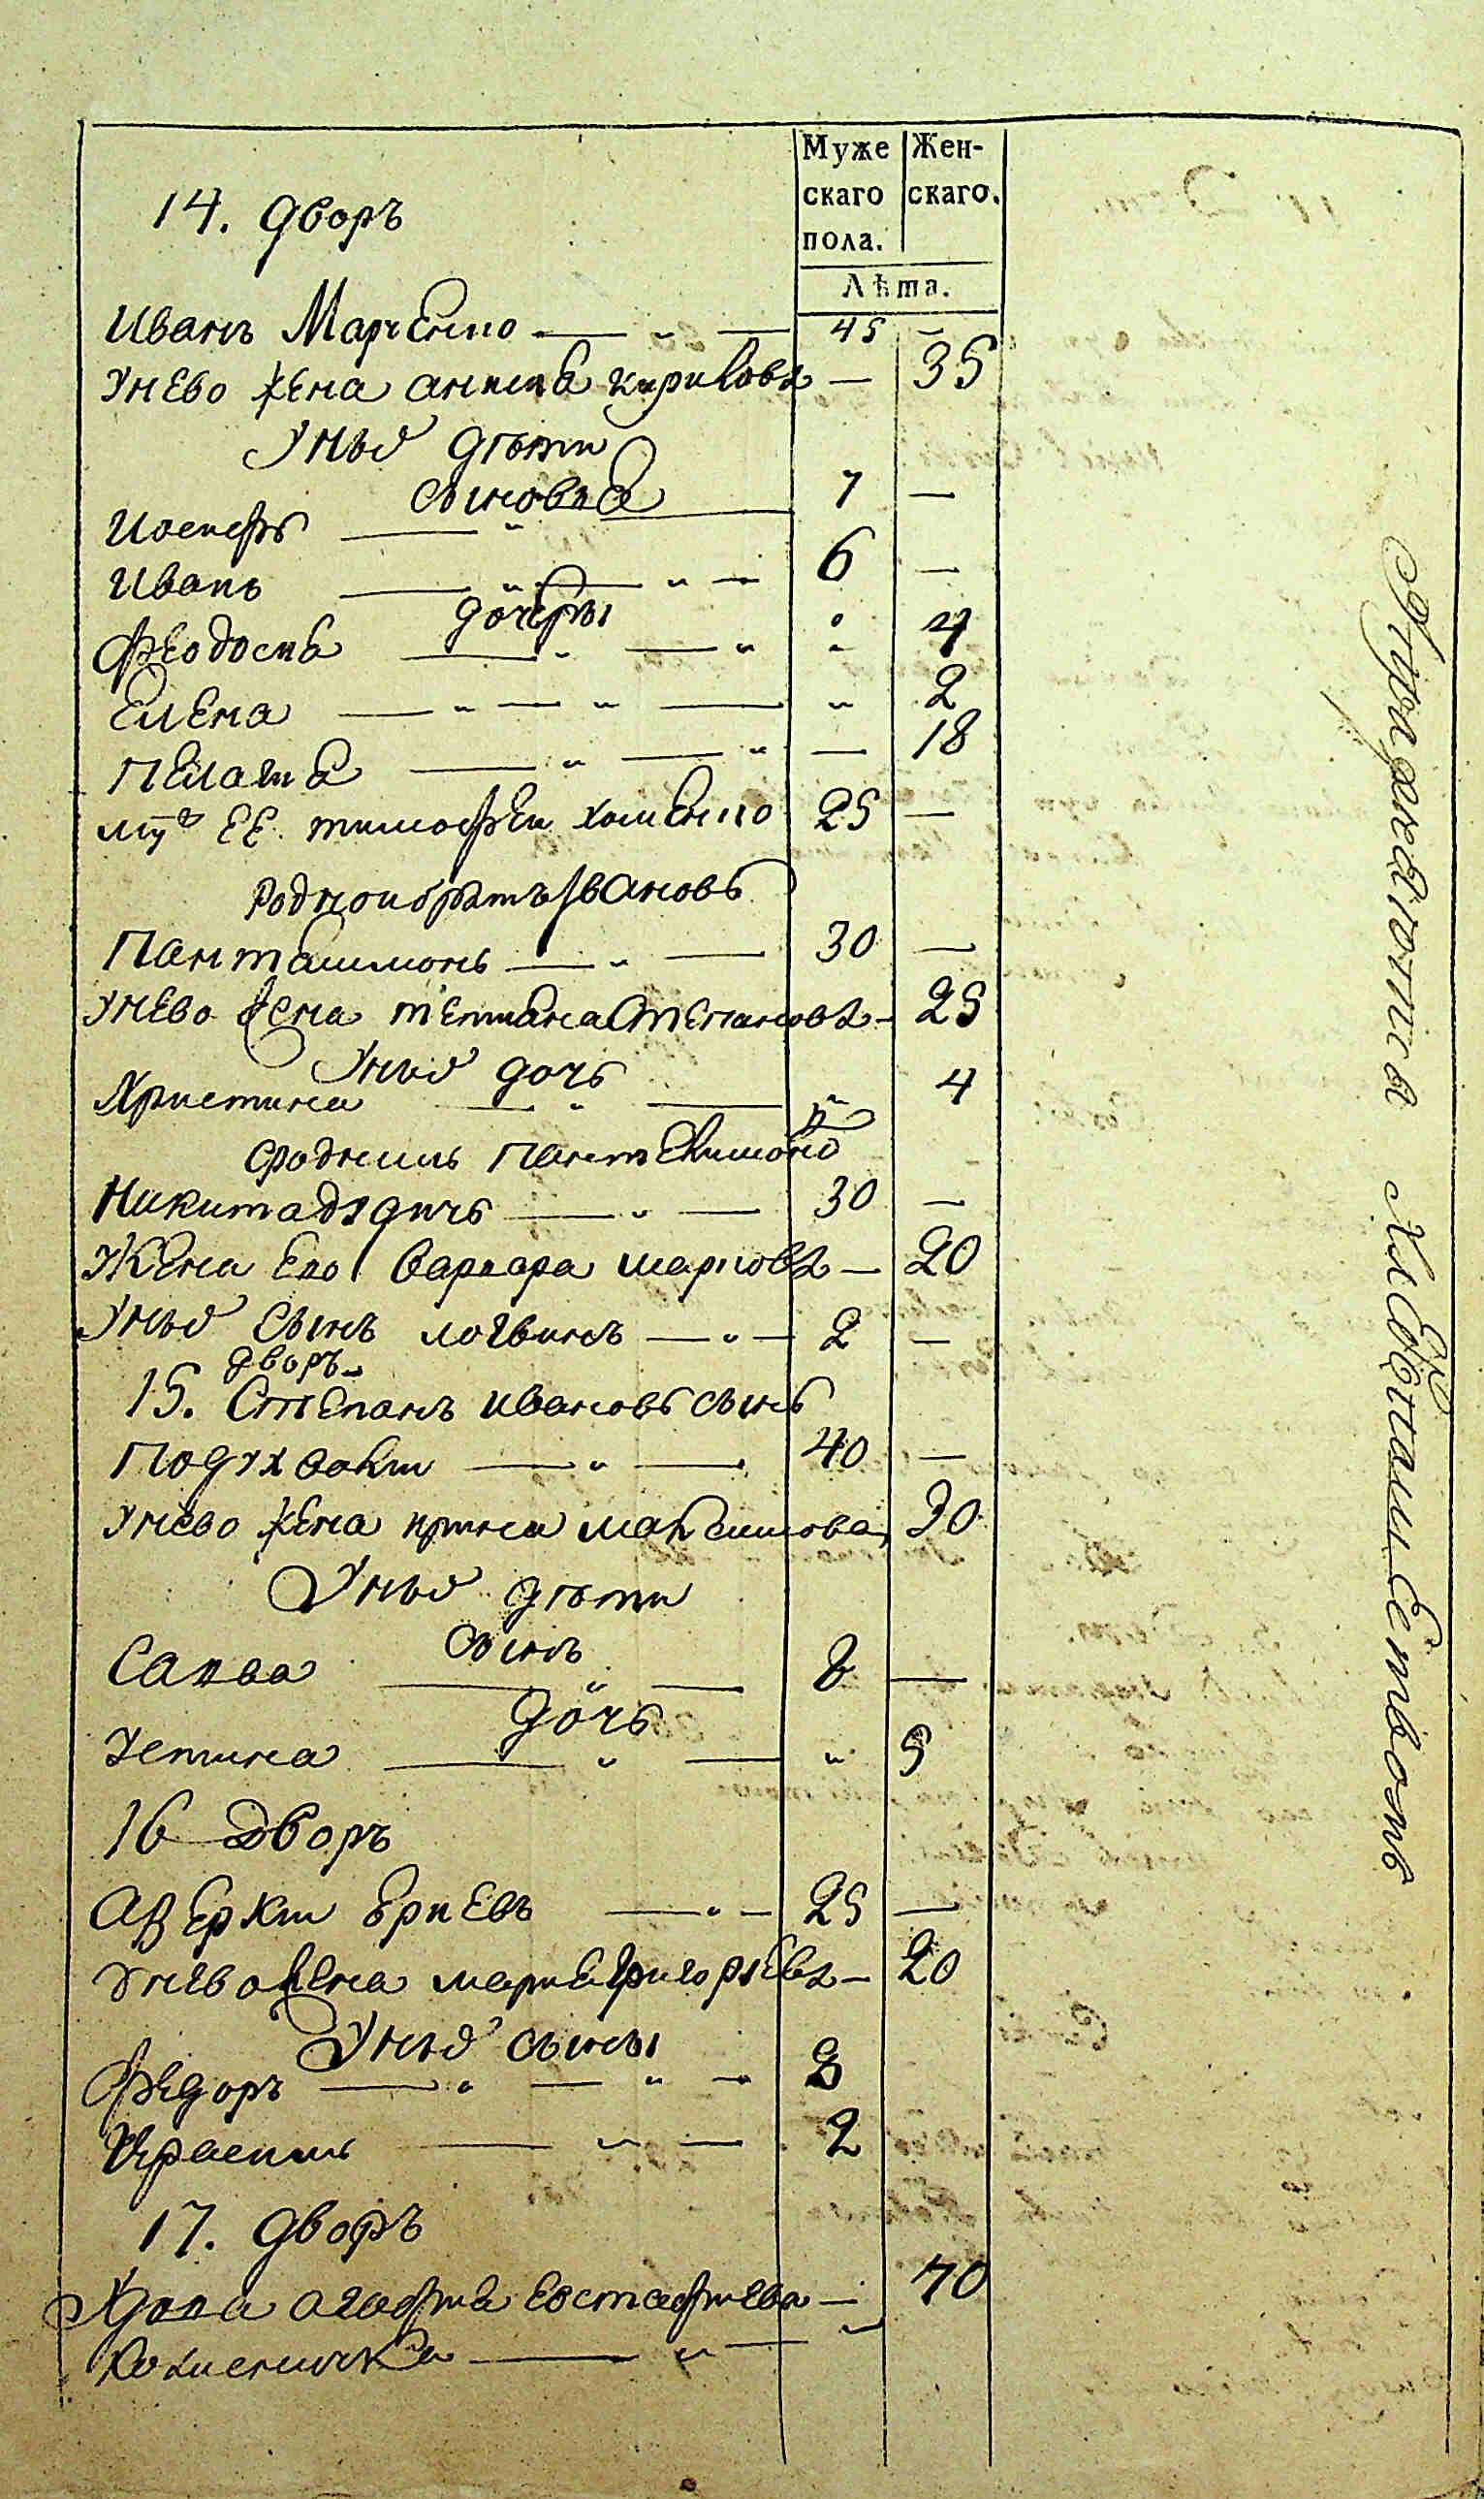 Муже
скаго
пола.
Жен-
скаго.
Лѣта.
14. дворъ
Иванъ Марченко 45
унево жена анисия кирилова 35
унихъ дѣти
сыновья
Иосифъ 7
Иванъ 6
дочеры
Феодосия 4
Елена 2
Пелагия 18
мужъ ее тимофеи хоменко 25
Родной братъ Ивановъ
Панталимонъ 30
унево жена тетияна Степанова 25
унихъ дочь
Христина 4
сродникъ
Никита дядичь 30
Жена его варвара маркова 20
унихъ сынъ логвинъ 2
дворъ
15. Степанъ ивановъ сынъ
40
унево жена ирина максимова 30
унихъ дѣти
сынъ
Савва 8
дочь
Устина 5
16 Дворъ
Аверкии 25
унево жена мария григориева 20
унихъ сыны
Федоръ 3
Герасимъ 2
17. дворъ
Вдова агафия евстафиева 70
Упражняются хлебопашеством